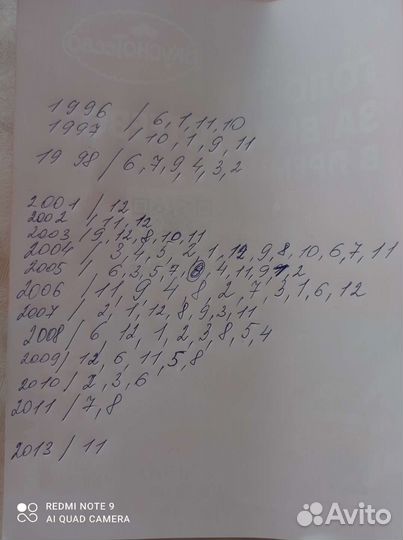 ВКУСНОТЕЕВО
1996 / 6, 1, 11, 10
1997 / 10, 1, 9, 11
1998 / 6, 7, 9, 4, 3, 2
2001 / 12
2002 / 11, 12
2003 / 9, 12, 8, 10, 11
2004 / 3, 4, 5, 2, 1, 12, 9, 8, 10, 6, 7, 11
2005 / 6, 3, 5, 7, 8, 4, 11, 9, 1, 2
2006 / 11, 9, 4, 8, 2, 7, 3, 1, 6, 12
2007 / 2, 1, 12, 8, 9, 3, 11
2008 / 6, 12, 1, 2, 3, 8, 5, 4
2009 / 12, 6, 11, 5, 8
2010 / 2, 3, 6
2011 / 7, 8
2013 / 11
REDMI NOTE 9
AI QUAD CAMERA
Avito